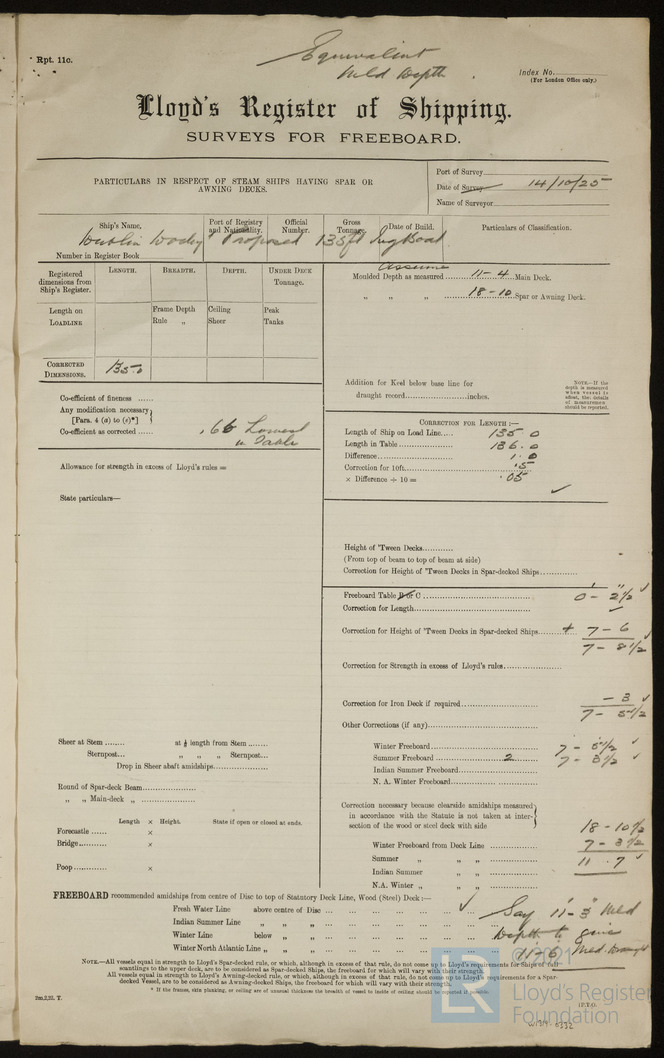 Rpt. 11c.
Equivalent
Mld Depth
Index No.
(For London Office only.)
Lloyd's Register of Shipping.
SURVEYS FOR FREEBOARD.
PARTICULARS IN RESPECT OF STEAM SHIPS HAVING SPAR OR
AWNING DECKS.
Port of Survey
Date of Survey 14/10/25
Name of Surveyor
Ship's Name, Port of Registry and Nationality. Official Number. Gross Tonnage. Date of Build. Particulars of Classification.
Dublin Proposed 135ft Tug Boat
Number in Register Book
Registered dimensions from Ship's Register. LENGTH. BREADTH. DEPTH. UNDER DECK TONNAGE.
Length on LOADLINE Frame Depth Rule „ Ceiling Sheer Peak Tanks
CORRECTED DIMENSIONS. 135.0
Co-efficient of fineness ......
Any modification necessary
[Para. 4 (a) to (e)*]
Co-efficient as corrected ...... .66 Lowest
in Table
Allowance for strength in excess of Lloyd's rules =
State particulars—
Sheer at Stem ........ at ⅛ length from Stem ........
Sternpost... „ „ „ Sternpost...
Drop in Sheer abaft amidships
Round of Spar-deck Beam
„ „ Main-deck „
Length × Height. State if open or closed at ends.
Forecastle ...... ×
Bridge ×
Poop ×
Assume
Moulded Depth as measured 11-4 Main Deck.
„ „ „ 18-10 Spar or Awning Deck.
Addition for Keel below base line for
draught record inches.
NOTE.—If the
depth is measured
when vessel is
afloat, the details
of measurement
should be reported.
CORRECTION FOR LENGTH :—
Length of Ship on Load Line 135.0
Length in Table 136.0
Difference 1.0
Correction for 10ft. .5
× Difference ÷ 10 = .05
Height of 'Tween Decks
(From top of beam to top of beam at side)
Correction for Height of 'Tween Decks in Spar-decked Ships
Freeboard Table B or C 0 - 2½
Correction for Length
Correction for Height of 'Tween Decks in Spar-decked Ships + 7 - 6
7 - 8½
Correction for Strength in excess of Lloyd's rules
Correction for Iron Deck if required - 3
7 - 5½
Other Corrections (if any)
Winter Freeboard 7 - 5½
Summer Freeboard 2 7 - 3½
Indian Summer Freeboard
N. A. Winter Freeboard
Correction necessary because clearside amidships measured
in accordance with the Statute is not taken at inter-
section of the wood or steel deck with side
18 - 10½
Winter Freeboard from Deck Line 7 - 3½
Summer „ „ „ 11 . 7
Indian Summer „ „ „
N.A. Winter „ „ „
FREEBOARD recommended amidships from centre of Disc to top of Statutory Deck Line, Wood (Steel) Deck :—
Fresh Water Line above centre of Disc
Indian Summer Line „ „ „
Winter Line below „ „
Winter North Atlantic Line „ „ „
Say 11-3 Mld
Depth to give
11-6 Mld. Draught
NOTE.—All vessels equal in strength to Lloyd's Spar-decked rule, or which, although in excess of that rule, do not come up to Lloyd's requirements for Ships of full
scantlings to the upper deck, are to be considered as Spar-decked Ships, the freeboard for which will vary with their strength.
All vessels equal in strength to Lloyd's Awning-decked rule, or which, although in excess of that rule, do not come up to Lloyd's requirements for a Spar-
decked Vessel, are to be considered as Awning-decked Ships, the freeboard for which will vary with their strength.
* If the frames, skin planking, or ceiling are of unusual thickness the breadth of vessel to inside of ceiling should be reported if possible.
2m,2,22. T.
(P.T.O.)
© 2021
Lloyd's Register
Foundation
LR
W1319-0332